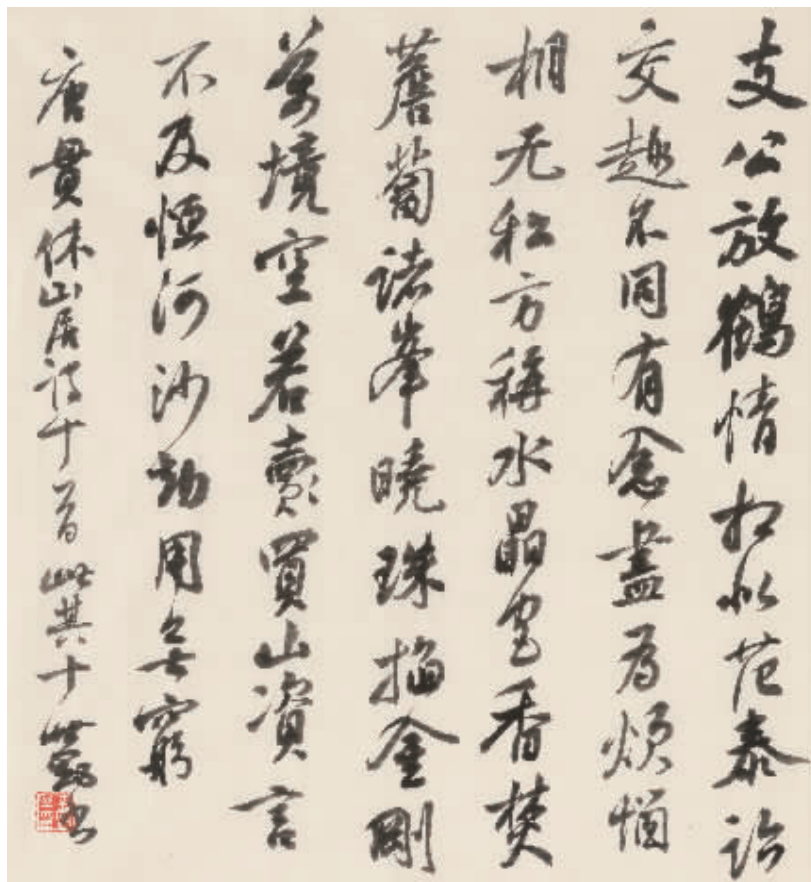 支公放鶴情相似范泰論
交趣不同有念盡為煩惱
相无私方稱水晶宮香焚
薝蔔諸峯曉珠掐金剛
萬境空若賣買山資言
不及恆河沙劫用無窮
唐貫休山居詩十首此其十